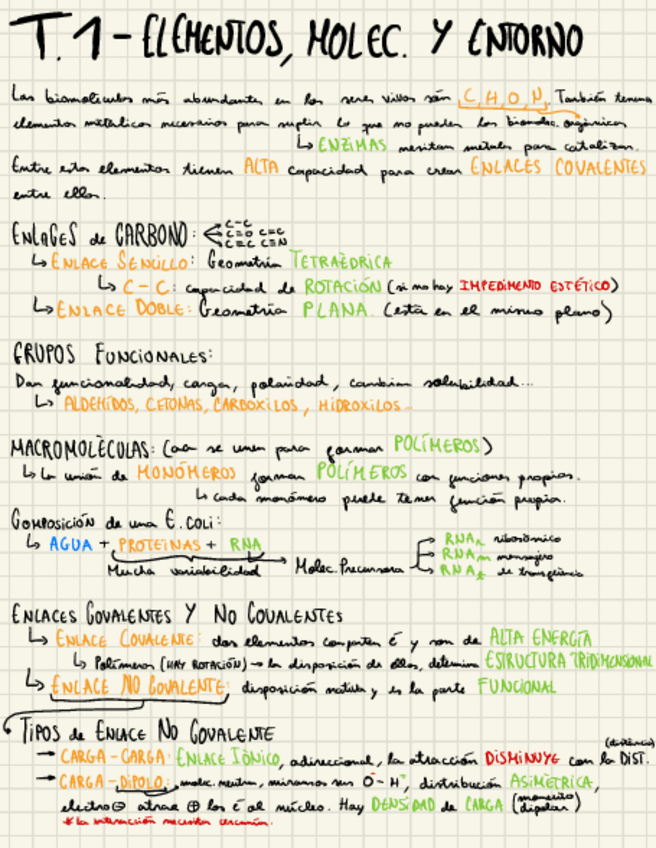 T.1 - ELEMENTOS, MOLEC. Y ENTORNO
Las biomoléculas más abundantes en los seres vivos són C, H, O, N. También tenemos
elementos metálicos necesarios para suplir lo que no pueden las biomolec. orgánicas
↳ ENZIMAS necesitan metales para catalizar.
Entre estos elementos tienen ALTA capacidad para crear ENLACES COVALENTES
entre ellos.
ENLACES de CARBONO: C-C
C=O C=C
C≡C C≡N
↳ ENLACE SENCILLO: Geometría TETRAÈDRICA
↳ C-C: capacidad de ROTACIÓN (si no hay IMPEDIMENTO ESTÉTICO)
↳ ENLACE DOBLE: Geometría PLANA. (está en el mismo plano)
GRUPOS FUNCIONALES:
Dan funcionalidad, carga, polaridad, cambian solubilidad...
↳ ALDEHÍDOS, CETONAS, CARBOXILOS, HIDROXILOS...
MACROMOLÈCULAS: (aa se unen para formar POLÍMEROS)
↳ La unión de MONÓMEROS forman POLÍMEROS con funciones propias.
↳ cada monómero puede tener función propia.
COMPOSICIÓN de una E. COLI:
↳ AGUA + PROTEINAS + RNA
Mucha variabilidad → Molec. Precursora
RNAr ribosómico
RNAm mensajero
RNAt de transferencia
ENLACES COVALENTES Y NO COVALENTES
↳ ENLACE COVALENTE: dos elementos comparten é y son de ALTA ENERGÍA
↳ Polímeros (HAY ROTACIÓN) → la disposición de ellos, determina ESTRUCTURA TRIDIMENSIONAL
↳ ENLACE NO COVALENTE: disposición nativa y es la parte FUNCIONAL
TIPOS de ENLACE NO COVALENTE
→ CARGA-CARGA: ENLACE IÒNICO, adireccional, la atracción DISMINUYE con la DIST. (distáncia)
→ CARGA-DIPOLO: molec. neutra, miramos sus O⁻-H⁺, distribución ASIMÈTRICA,
electro⊖ atrae ⊕ los é al núcleo. Hay DENSIDAD de CARGA (momento dipolar)
* la interacción necesita cercanía.